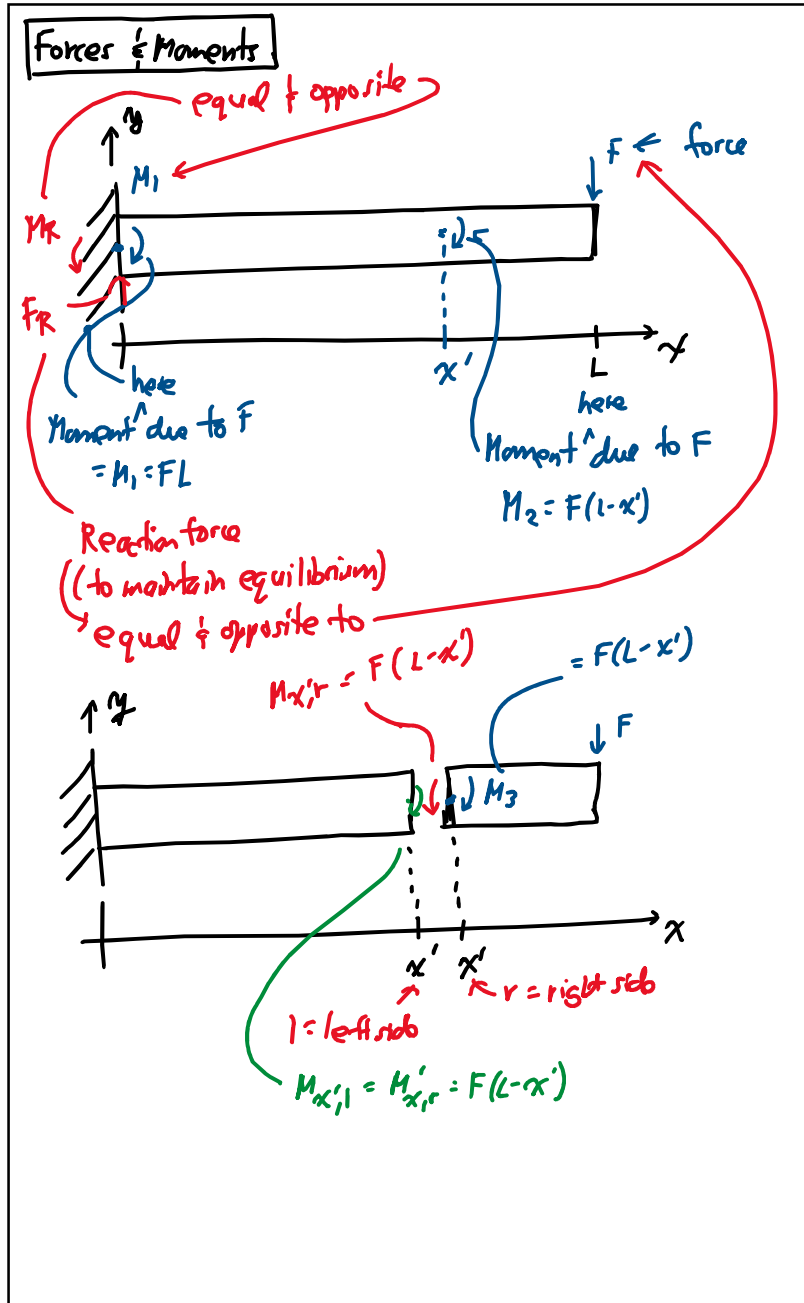 Forces & Moments
equal & opposite
y
M₁
F ← force
M_R
F_R
x'
x
L
here
Moment ^ due to F
= M₁ = FL
here
Moment ^ due to F
M₂ = F(L-x')
Reaction force
(to maintain equilibrium)
equal & opposite to
M_x',r = F(L-x')
= F(L-x')
y
F
M₃
x
x' x'
r = right side
l = left side
M_x',l = M_x',r = F(L-x')